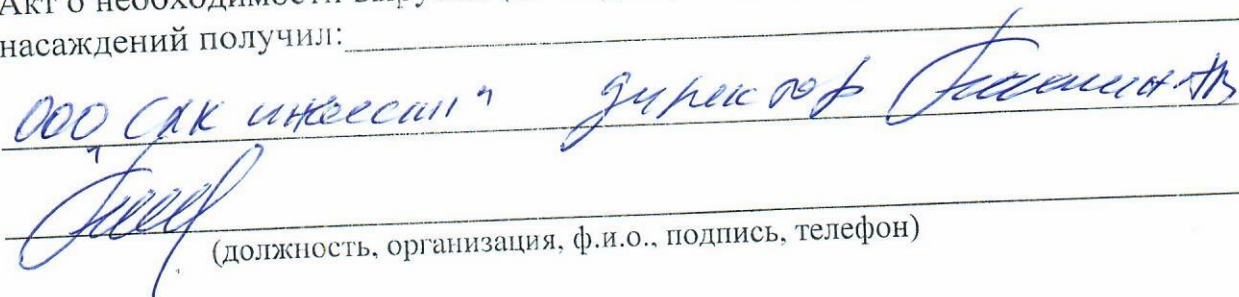 Акт о необходимости
насаждений получил:
ООО "САК инвест" директор
(должность, организация, ф.и.о., подпись, телефон)